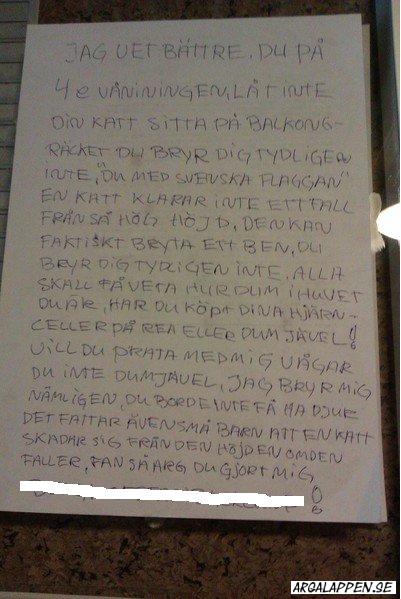 JAG VET BÄTTRE, DU PÅ
4 e VÅNININGEN, LÅT INTE
DIN KATT SITTA PÅ BALKONG-
RÄCKET DU BRYR DIG TYDLIGEN
INTE, "DU MED SVENSKA FLAGGAN"
EN KATT KLARAR INTE ETT FALL
FRÅN SÅ HÖG HÖJD, DEN KAN
FAKTISKT BRYTA ETT BEN, DU
BRYR DIG TYDLIGEN INTE, ALLA
SKALL FÅ VETA HUR DUM I HUVET
DU ÄR, HAR DU KÖPT DINA HJÄRN-
CELLER PÅ REA ELLER DUM JÄVEL!
VILL DU PRATA MED MIG VÅGAR
DU INTE DUMJÄVEL, JAG BRYR MIG
NÄMLIGEN, DU BORDE INTE FÅ HA DJUR
DET FATTAR ÄVEN SMÅ BARN ATT EN KATT
SKADAR SIG FRÅN DEN HÖJDEN OM DEN
FALLER, FAN SÅ ARG DU GJORT MIG
!
ARGALAPPEN.SE